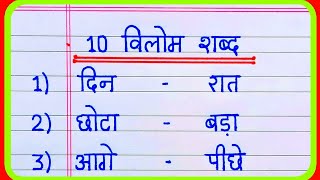 10 विलोम शब्द
1) दिन - रात
2) छोटा - बड़ा
3) आगे - पीछे